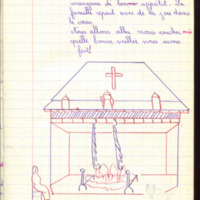 mangeons de bonne appétit. La
famille repart avec de la joie dans
le cœur.
Nous allons allez nous coucher mais
quelle bonne veillée nous avons
fait!